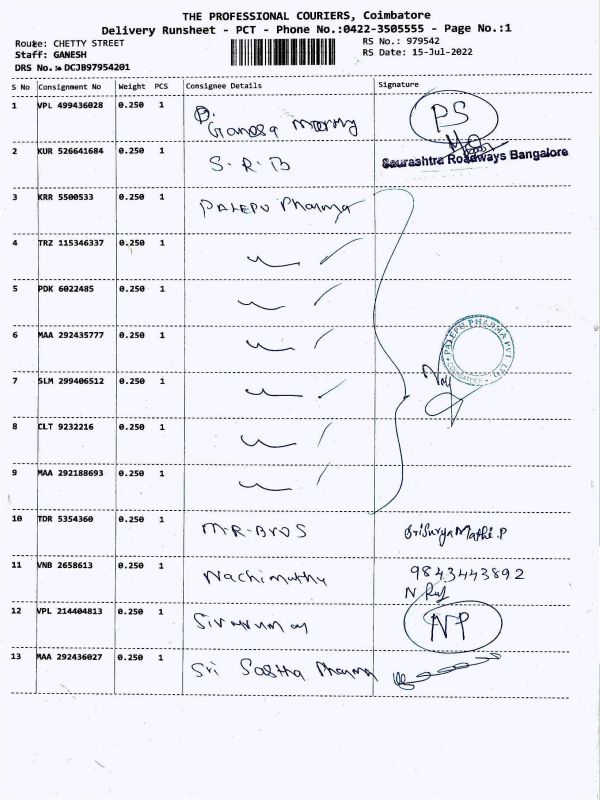 THE PROFESSIONAL COURIERS, Coimbatore
Delivery Runsheet - PCT - Phone No.:0422-3505555 - Page No.:1
Route: CHETTY STREET RS No.: 979542
Staff: GANESH RS Date: 15-Jul-2022
DRS No.:* DCJB97954201
S No Consignment No Weight PCS Consignee Details Signature
1 VPL 499436028 0.250 1 Ganesa moorthy PS
2 KUR 526641684 0.250 1 S.R.B Saurashtra Roadways Bangalore
3 KRR 5500533 0.250 1 PALEPU Pharma
4 TRZ 115346337 0.250 1
5 PDK 6022485 0.250 1
6 MAA 292435777 0.250 1
PALEPU PHARMA PVT LTD
COIMBATORE
7 SLM 299406512 0.250 1
8 CLT 9232216 0.250 1
9 MAA 292188693 0.250 1
10 TDR 5354360 0.250 1 M.R.Bros SriSuryaMathi.P
11 VNB 2658613 0.250 1 Nachimuthu 9843443892
12 VPL 214404813 0.250 1 NP
13 MAA 292436027 0.250 1 Sri Sastha Pharma